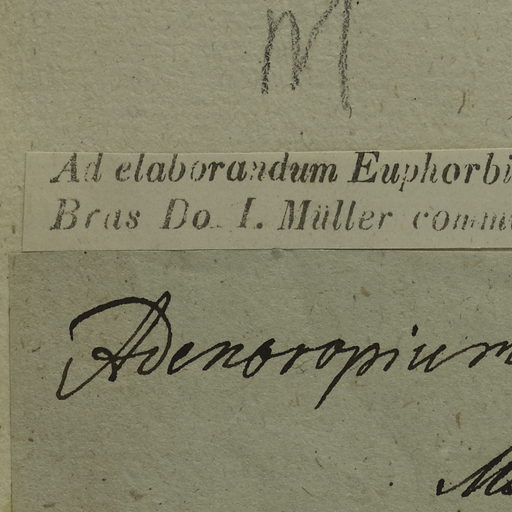 M
Ad elaborandum Euphorbi
Bras Do. I. Müller commu
Adenoropium